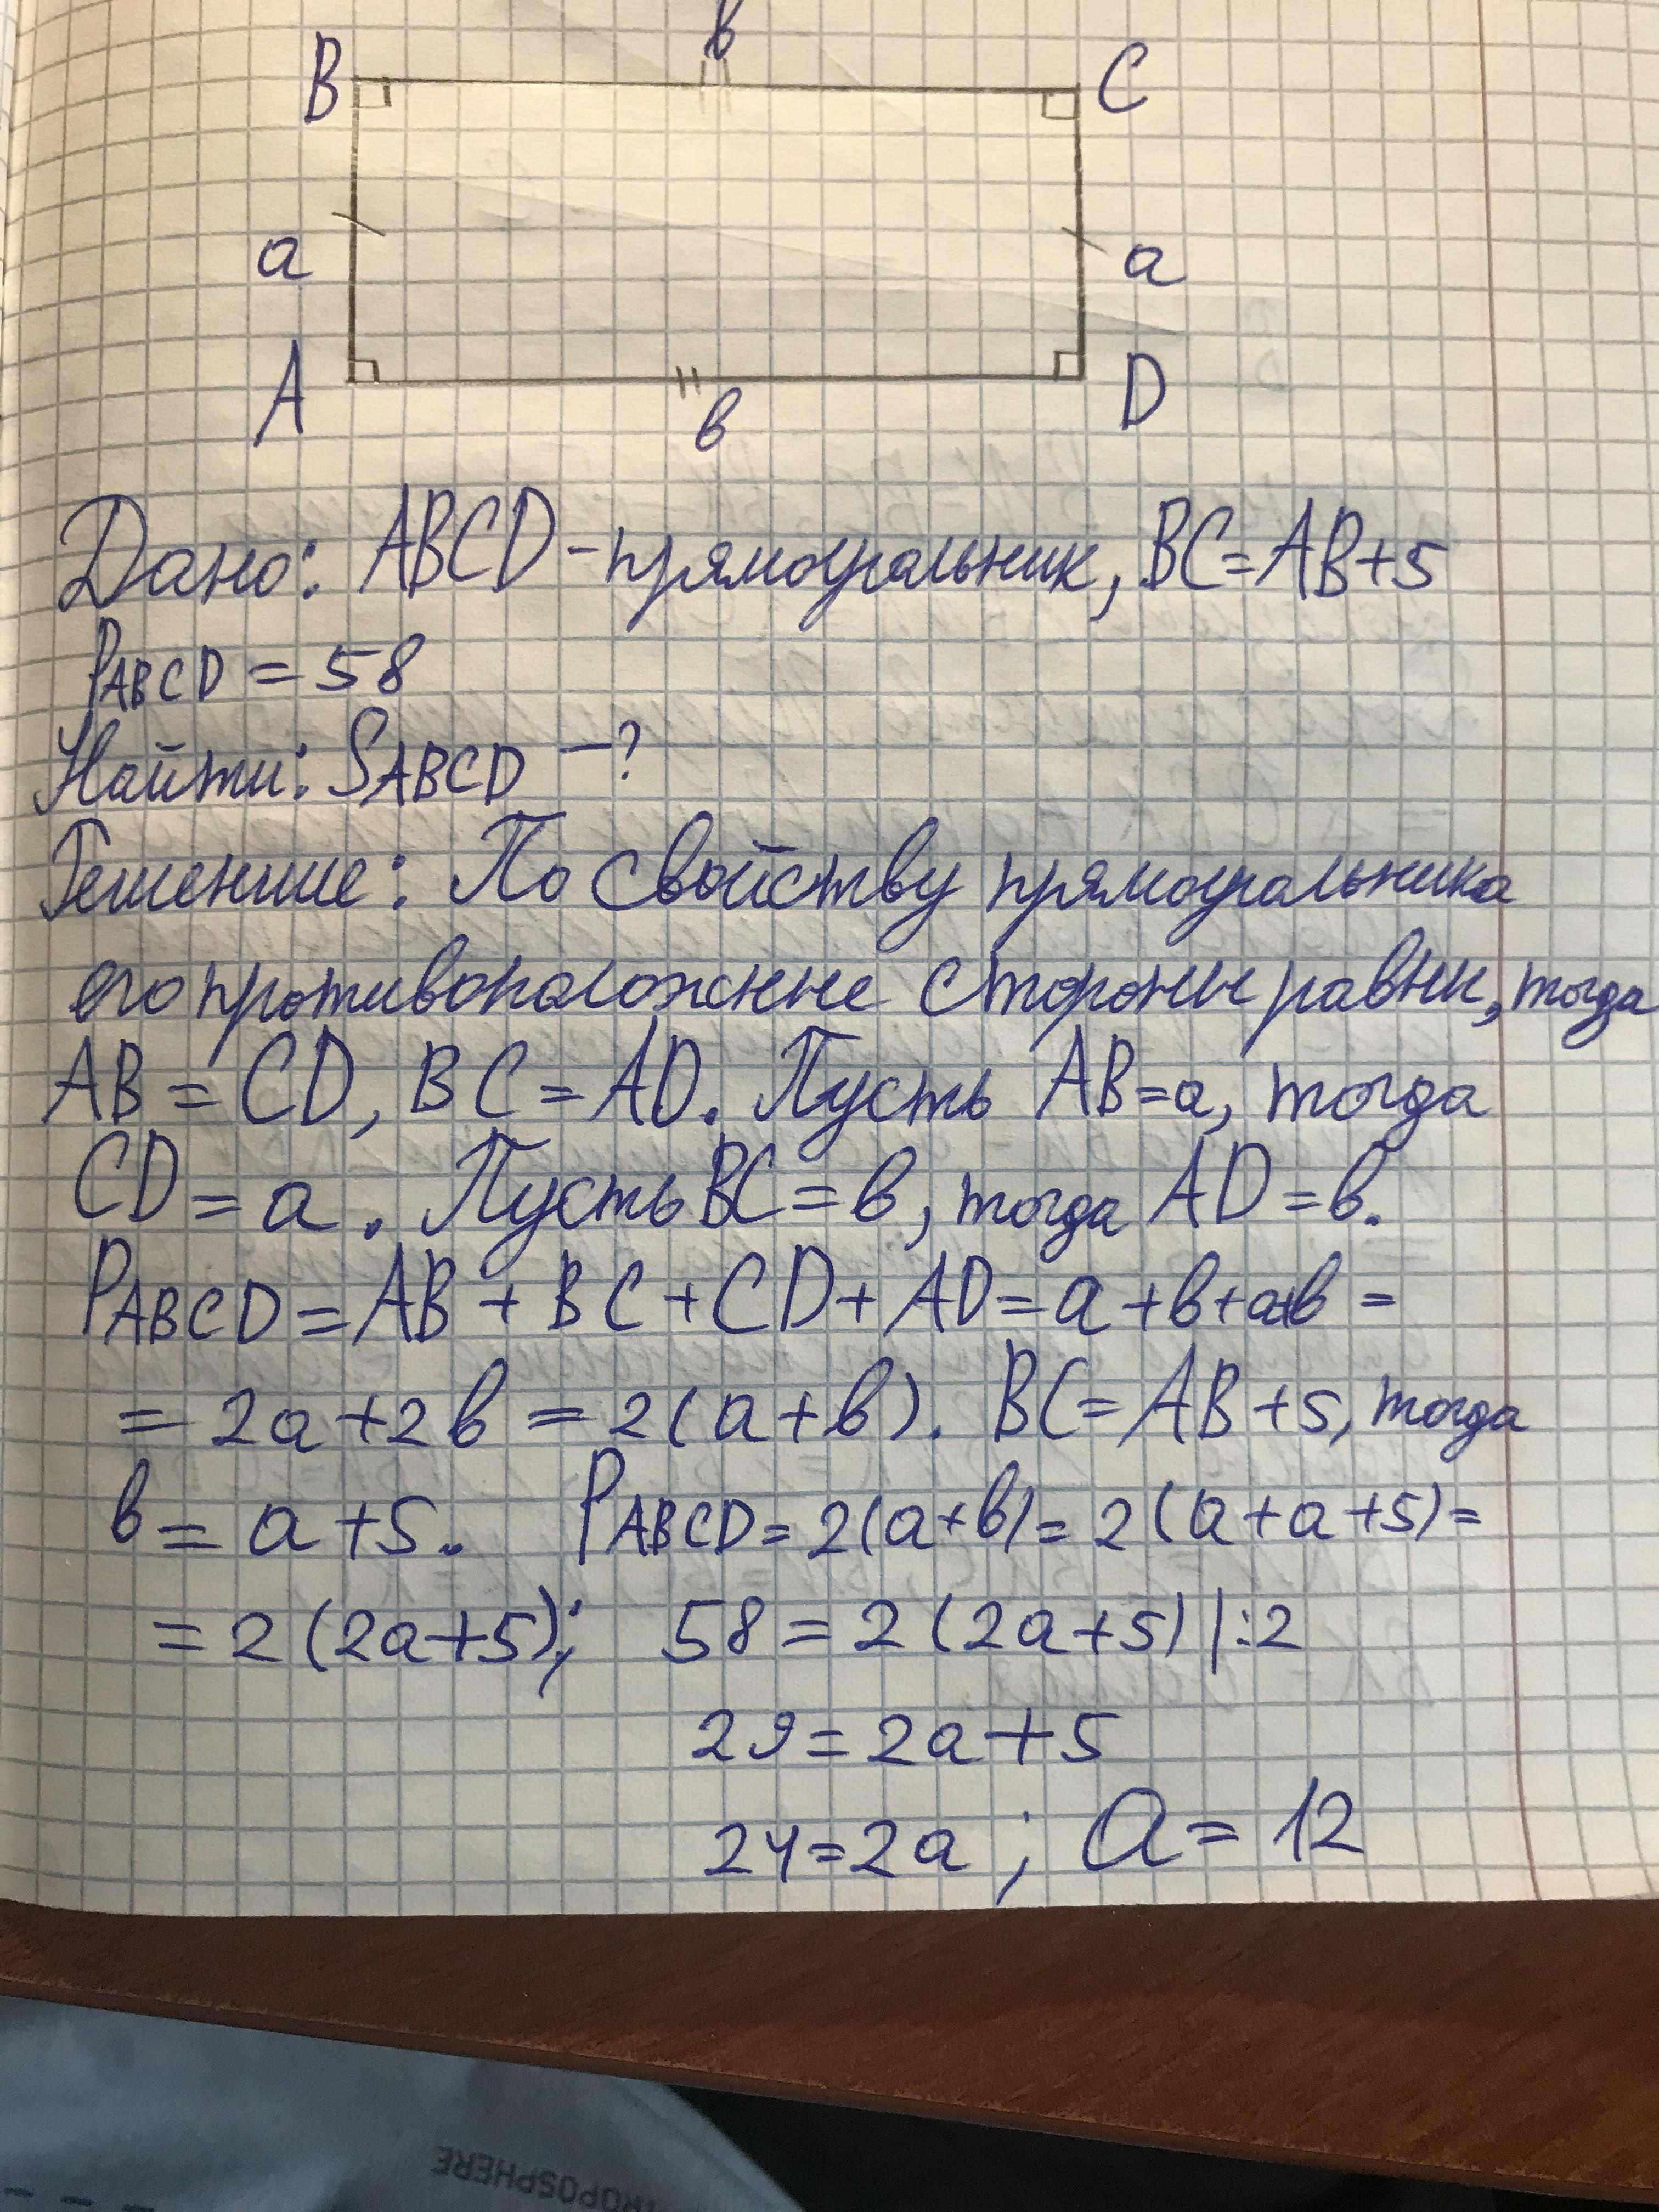 в
B C
a a
A D
в
Дано: ABCD - прямоугольник, BC = AB + 5
PABCD = 58
Найти: SABCD - ?
Решение: По свойству прямоугольника
его противоположные стороны равны, тогда
AB = CD, BC = AD. Пусть AB = a, тогда
CD = a. Пусть BC = в, тогда AD = в.
PABCD = AB + BC + CD + AD = a + в + a + в =
= 2a + 2в = 2(a + в). BC = AB + 5, тогда
в = a + 5. PABCD = 2(a + в) = 2(a + a + 5) =
= 2(2a + 5); 58 = 2(2a + 5) |:2
29 = 2a + 5
24 = 2a ; a = 12
TROPOSPHERE